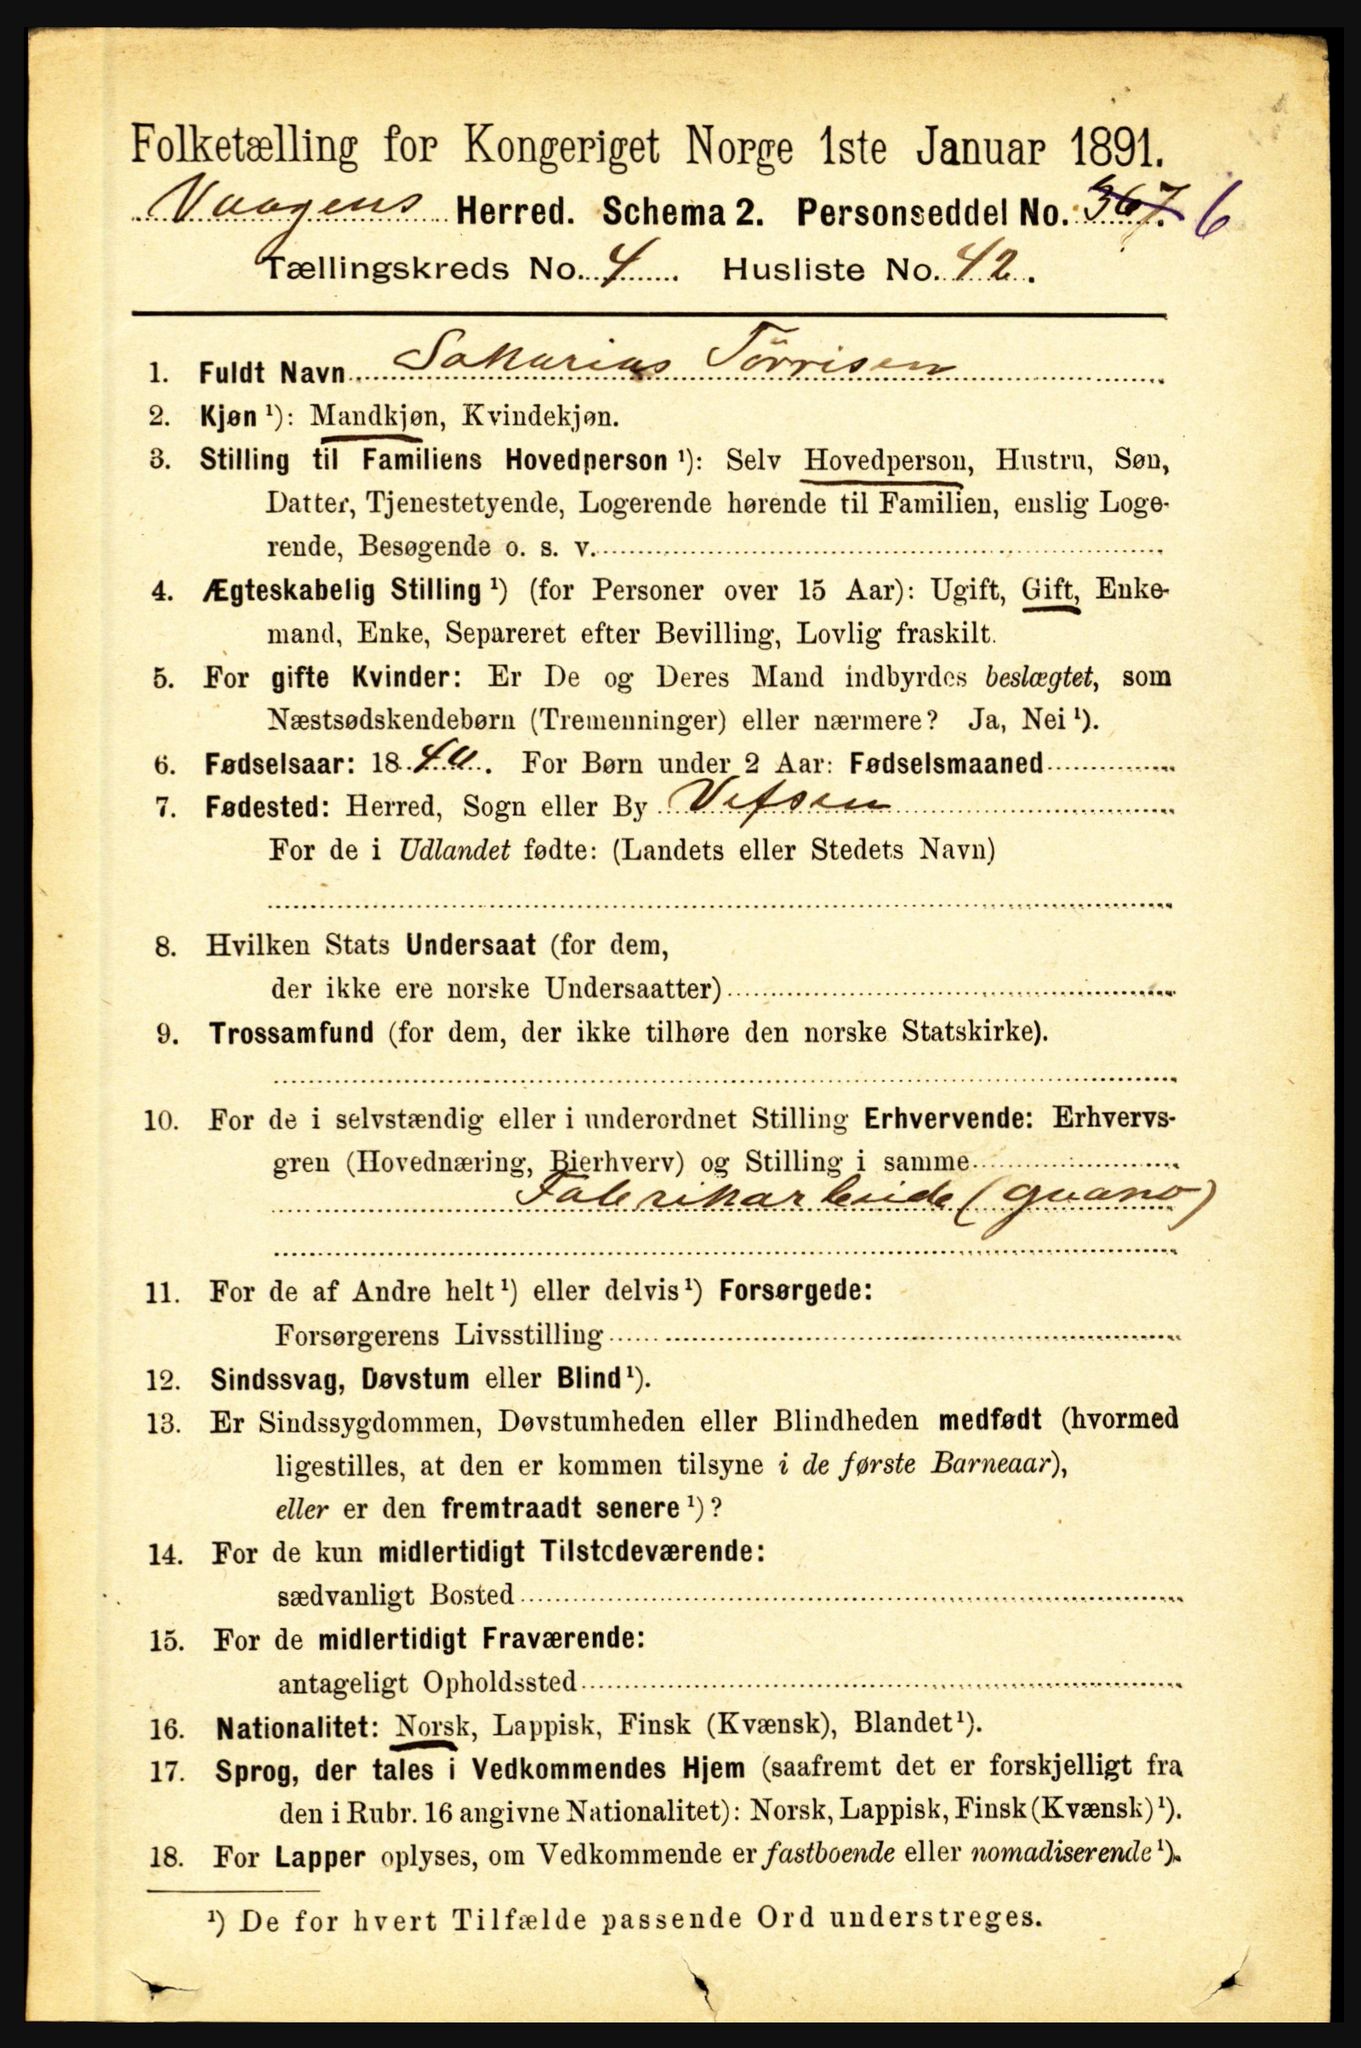 Folketælling for Kongeriget Norge 1ste Januar 1891.
Vaagens Herred. Schema 2. Personseddel No. 367. 6
Tællingskreds No. 4. Husliste No. 42.
1. Fuldt Navn Sakarias Törrisen
2. Kjøn ¹): Mandkjøn, Kvindekjøn.
3. Stilling til Familiens Hovedperson ¹): Selv Hovedperson, Hustru, Søn,
Datter, Tjenestetyende, Logerende hørende til Familien, enslig Loge-
rende, Besøgende o. s. v.
4. Ægteskabelig Stilling ¹) (for Personer over 15 Aar): Ugift, Gift, Enke-
mand, Enke, Separeret efter Bevilling, Lovlig fraskilt.
5. For gifte Kvinder: Er De og Deres Mand indbyrdes beslægtet, som
Næstsødskendebørn (Tremenninger) eller nærmere? Ja, Nei ¹).
6. Fødselsaar: 1840. For Børn under 2 Aar: Fødselsmaaned
7. Fødested: Herred, Sogn eller By Vefsen
For de i Udlandet fødte: (Landets eller Stedets Navn)
8. Hvilken Stats Undersaat (for dem,
der ikke ere norske Undersaatter)
9. Trossamfund (for dem, der ikke tilhøre den norske Statskirke).
10. For de i selvstændig eller i underordnet Stilling Erhvervende: Erhvervs-
gren (Hovednæring, Bierhverv) og Stilling i samme
Fabrikarbeide (guano)
11. For de af Andre helt ¹) eller delvis ¹) Forsørgede:
Forsørgerens Livsstilling
12. Sindssvag, Døvstum eller Blind ¹).
13. Er Sindssygdommen, Døvstumheden eller Blindheden medfødt (hvormed
ligestilles, at den er kommen tilsyne i de første Barneaar),
eller er den fremtraadt senere ¹)?
14. For de kun midlertidigt Tilstedeværende:
sædvanligt Bosted
15. For de midlertidigt Fraværende:
antageligt Opholdssted
16. Nationalitet: Norsk, Lappisk, Finsk (Kvænsk), Blandet ¹).
17. Sprog, der tales i Vedkommendes Hjem (saafremt det er forskjelligt fra
den i Rubr. 16 angivne Nationalitet): Norsk, Lappisk, Finsk (Kvænsk) ¹).
18. For Lapper oplyses, om Vedkommende er fastboende eller nomadiserende ¹).
¹) De for hvert Tilfælde passende Ord understreges.